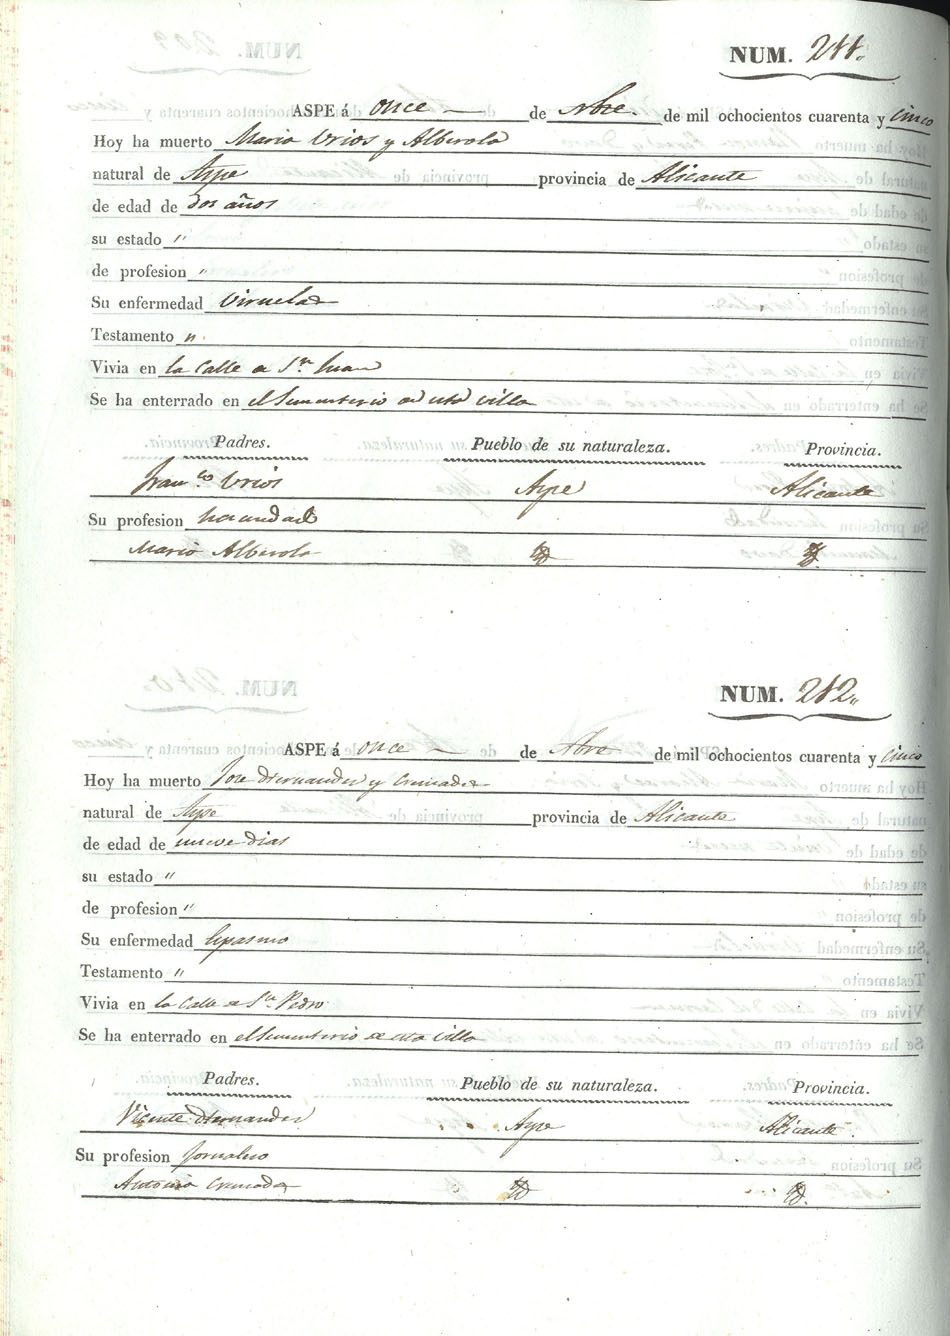 NUM. 211.
ASPE á once de Nbre. de mil ochocientos cuarenta y cinco
Hoy ha muerto Maria Urios y Alberola
natural de Aspe provincia de Alicante
de edad de dos años
su estado "
de profesion "
Su enfermedad Viruelas
Testamento "
Vivia en la Calle de Sn. Juan
Se ha enterrado en el Sementerio de esta villa
Padres. Pueblo de su naturaleza. Provincia.
Franco Urios Aspe Alicante
Su profesion hacendado
Maria Alberola Yd Yd.
NUM. 212.
ASPE á once de Nbre de mil ochocientos cuarenta y cinco
Hoy ha muerto Jose Hernandez y Cremades
natural de Aspe provincia de Alicante
de edad de nueve dias
su estado "
de profesion "
Su enfermedad Espasmo
Testamento "
Vivia en la Calle de Sn. Pedro
Se ha enterrado en el Sementerio de esta villa
Padres. Pueblo de su naturaleza. Provincia.
Vicente Hernandez Aspe Alicante
Su profesion Jornalero
Antonia Cremades Yd Yd.